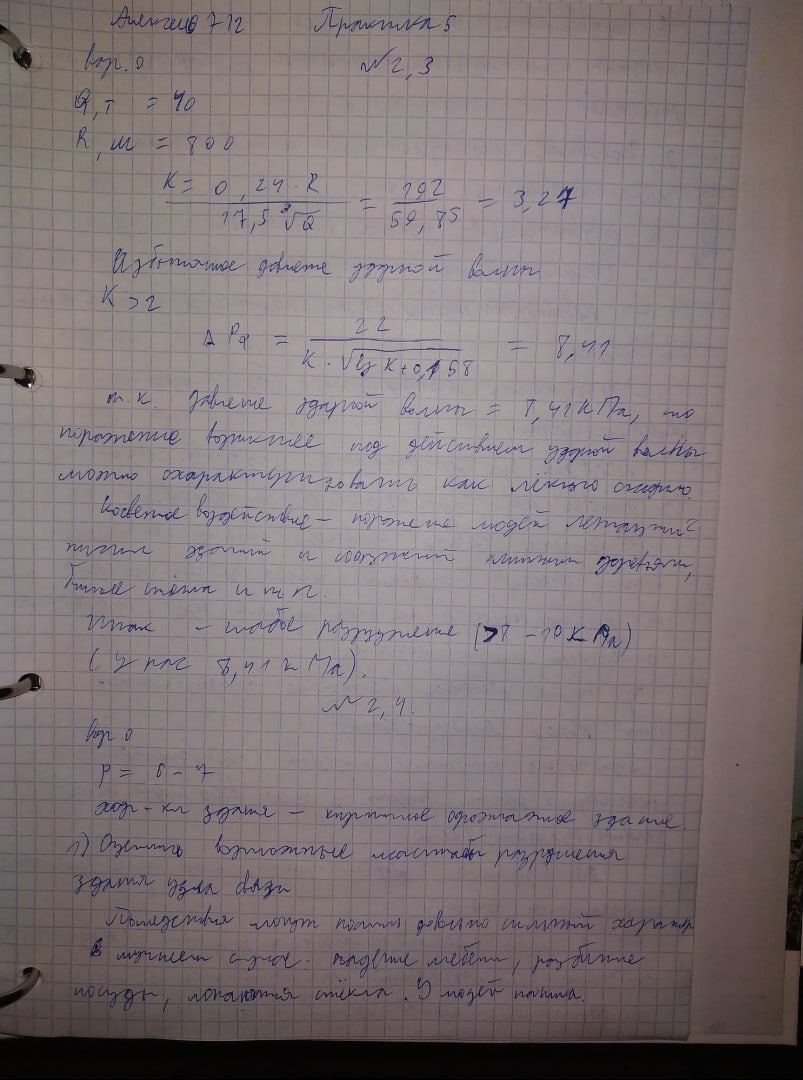 Алексеев 712 Практика 5
вар. 0 №2,3
Q, т = 40
R, м = 800
K = 0,24·R / 17,5 ³√Q = 192 / 59,85 = 3,27
Избыточное давление ударной волны
K > 2
ΔPф = 22 / K·√lg K + 0,158 = 8,41
т.к. давление ударной волны = 8,41 кПа, то
поражение возникшее под действием ударной волны
можно охарактеризовать как лёгкую
Косвенное воздействие – поражение людей летящими
зданий и сооружений деревьями,
битые стёкла и т.п.
Итак – слабое разрушение (>8 – 10 кПа)
(У нас 8,41 кПа).
№2,4.
вар 0
P = 6 – 7
хар-ки здания – кирпичное одноэтажное здание.
1) Оценить возможные масштабы разрушения
здания узла связи
Последствия могут носить довольно сильный характер
В лучшем случае: падение мебели, разбитие
посуды, лопаются стёкла. У людей паника.